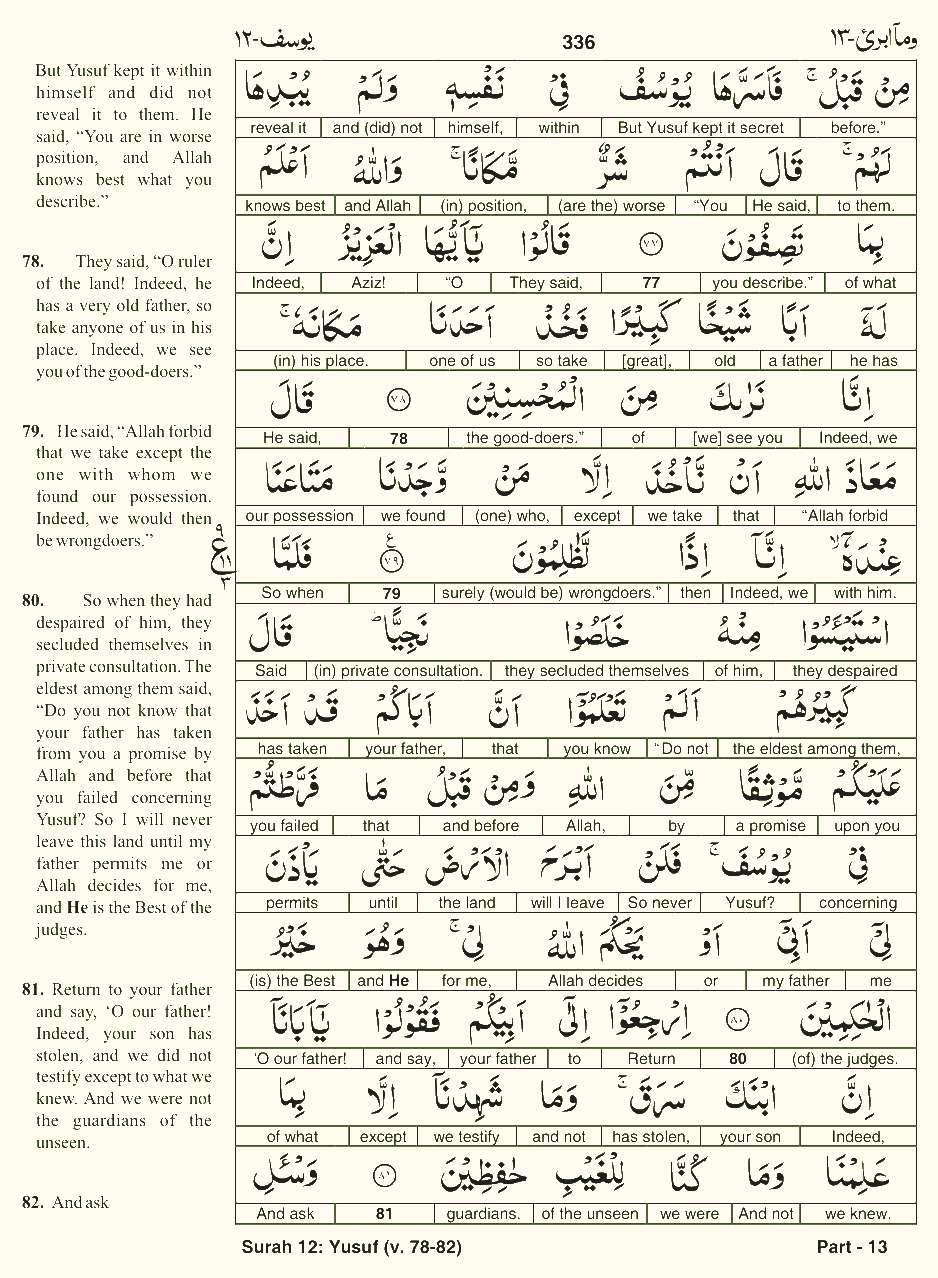 يوسف-١٢ 336 ومآ ابرئ-١٣
But Yusuf kept it within
himself and did not
reveal it to them. He
said, “You are in worse
position, and Allah
knows best what you
describe.”
78. They said, “O ruler
of the land! Indeed, he
has a very old father, so
take anyone of us in his
place. Indeed, we see
you of the good-doers.”
79. He said, “Allah forbid
that we take except the
one with whom we
found our possession.
Indeed, we would then
be wrongdoers.”
80. So when they had
despaired of him, they
secluded themselves in
private consultation. The
eldest among them said,
“Do you not know that
your father has taken
from you a promise by
Allah and before that
you failed concerning
Yusuf? So I will never
leave this land until my
father permits me or
Allah decides for me,
and He is the Best of the
judges.
81. Return to your father
and say, ‘O our father!
Indeed, your son has
stolen, and we did not
testify except to what we
knew. And we were not
the guardians of the
unseen.
82. And ask
مِنْ قَبْلُ ۚ فَاَسَرَّهَا يُوْسُفُ فِيْ نَفْسِهٖ وَلَمْ يُبْدِهَا
before.” But Yusuf kept it secret within himself, and (did) not reveal it
لَهُمْ ۚ قَالَ اَنْتُمْ شَرٌّ مَّكَانًا ۚ وَاللّٰهُ اَعْلَمُ
to them. He said, “You (are the) worse (in) position, and Allah knows best
بِمَا تَصِفُوْنَ ٧٧ قَالُوْا يٰٓاَيُّهَا الْعَزِيْزُ اِنَّ
of what you describe.” 77 They said, “O Aziz! Indeed,
لَهٗٓ اَبًا شَيْخًا كَبِيْرًا فَخُذْ اَحَدَنَا مَكَانَهٗ ۚ
he has a father old [great], so take one of us (in) his place.
اِنَّا نَرٰىكَ مِنَ الْمُحْسِنِيْنَ ٧٨ قَالَ
Indeed, we [we] see you of the good-doers.” 78 He said,
مَعَاذَ اللّٰهِ اَنْ نَّاْخُذَ اِلَّا مَنْ وَّجَدْنَا مَتَاعَنَا
“Allah forbid that we take except (one) who, we found our possession
عِنْدَهٗٓ ۙ اِنَّآ اِذًا لَّظٰلِمُوْنَ ٧٩ ع فَلَمَّا
٩ ع ١١ ٣
with him. Indeed, we then surely (would be) wrongdoers.” 79 So when
اسْتَيْـَٔسُوْا مِنْهُ خَلَصُوْا نَجِيًّا ؕ قَالَ
they despaired of him, they secluded themselves (in) private consultation. Said
كَبِيْرُهُمْ اَلَمْ تَعْلَمُوْٓا اَنَّ اَبَاكُمْ قَدْ اَخَذَ
the eldest among them, “Do not you know that your father, has taken
عَلَيْكُمْ مَّوْثِقًا مِّنَ اللّٰهِ وَمِنْ قَبْلُ مَا فَرَّطْتُّمْ
upon you a promise by Allah, and before that you failed
فِيْ يُوْسُفَ ۚ فَلَنْ اَبْرَحَ الْاَرْضَ حَتّٰى يَاْذَنَ
concerning Yusuf? So never will I leave the land until permits
لِيْٓ اَبِيْٓ اَوْ يَحْكُمَ اللّٰهُ لِيْ ۚ وَهُوَ خَيْرُ
me my father or Allah decides for me, and He (is) the Best
الْحٰكِمِيْنَ ٨٠ اِرْجِعُوْٓا اِلٰٓى اَبِيْكُمْ فَقُوْلُوْا يٰٓاَبَانَآ
(of) the judges. 80 Return to your father and say, ‘O our father!
اِنَّ ابْنَكَ سَرَقَ ۚ وَمَا شَهِدْنَآ اِلَّا بِمَا
Indeed, your son has stolen, and not we testify except of what
عَلِمْنَا وَمَا كُنَّا لِلْغَيْبِ حٰفِظِيْنَ ٨١ وَسْـَٔلِ
we knew. And not we were of the unseen guardians. 81 And ask
Surah 12: Yusuf (v. 78-82) Part - 13